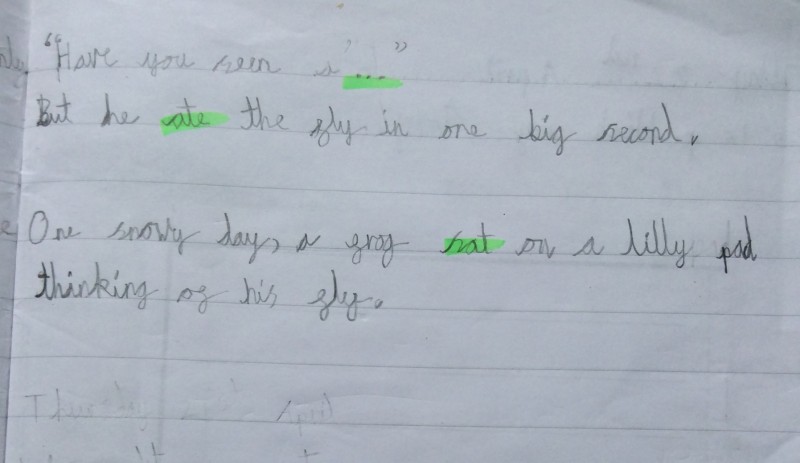 "Have you seen a '..."
But he ate the fly in one big second.
One snowy day, a frog sat on a lilly pad
thinking of his fly.